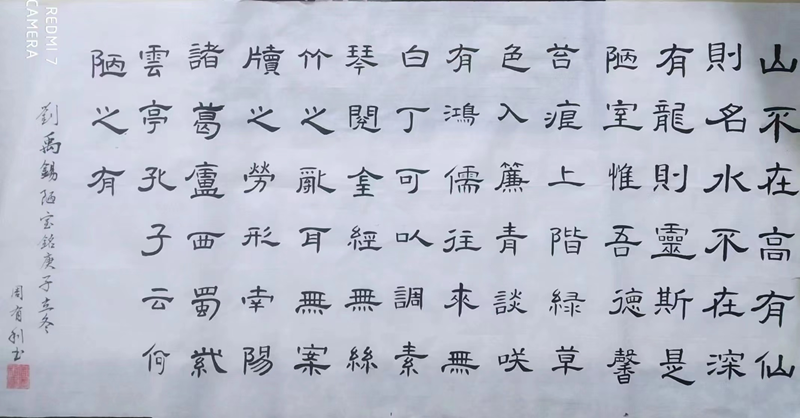 山不在高有仙
則名水不在深
有龍則靈斯是
陋室惟吾德馨
苔痕上階緑草
色入簾青談咲
有鴻儒往來無
白丁可以調素
琴閱金經無絲
竹之亂耳無案
牘之勞形南陽
諸葛廬西蜀
雲亭孔子云何
陋之有
劉禹錫陋室銘庚子立冬
周有利书
REDMI 7
CAMERA